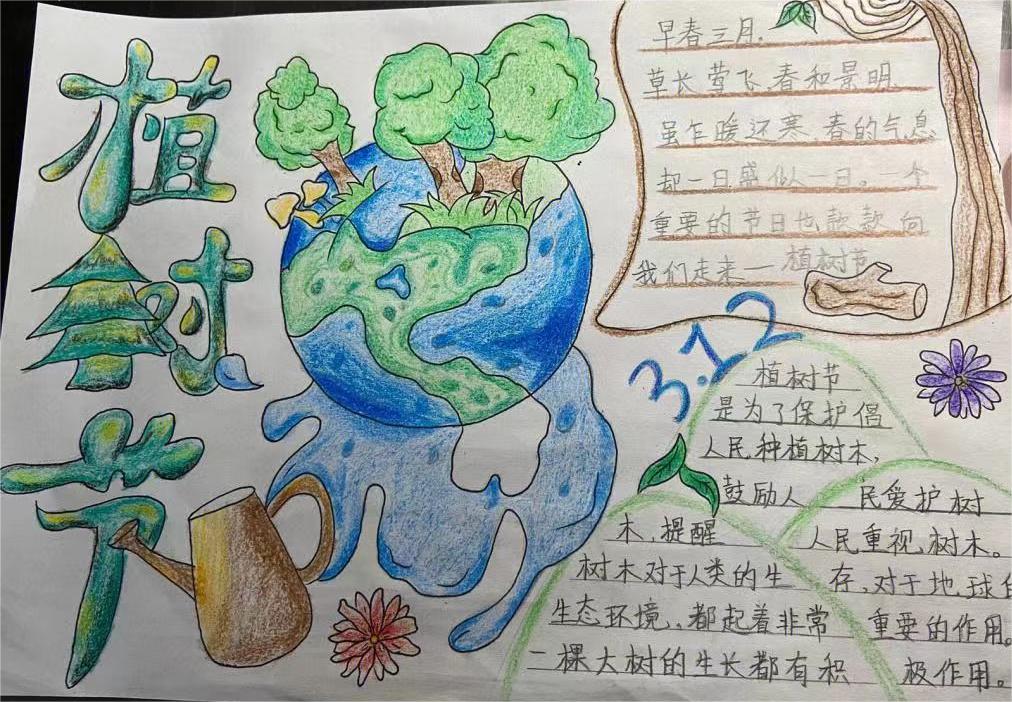 植树节
早春三月.
草长莺飞,春和景明
虽乍暖还寒 春的气息
却一日感似一日。一个
重要的节日也款款向
我们走来一植树节
3.12
植树节
是为了保护倡
人民种植树木,
鼓励人 民爱护树
木,提醒 人民重视树木。
树木对于人类的生 存,对于地球
生态环境,都起着非常 重要的作用。
一棵大树的生长都有积 极作用。